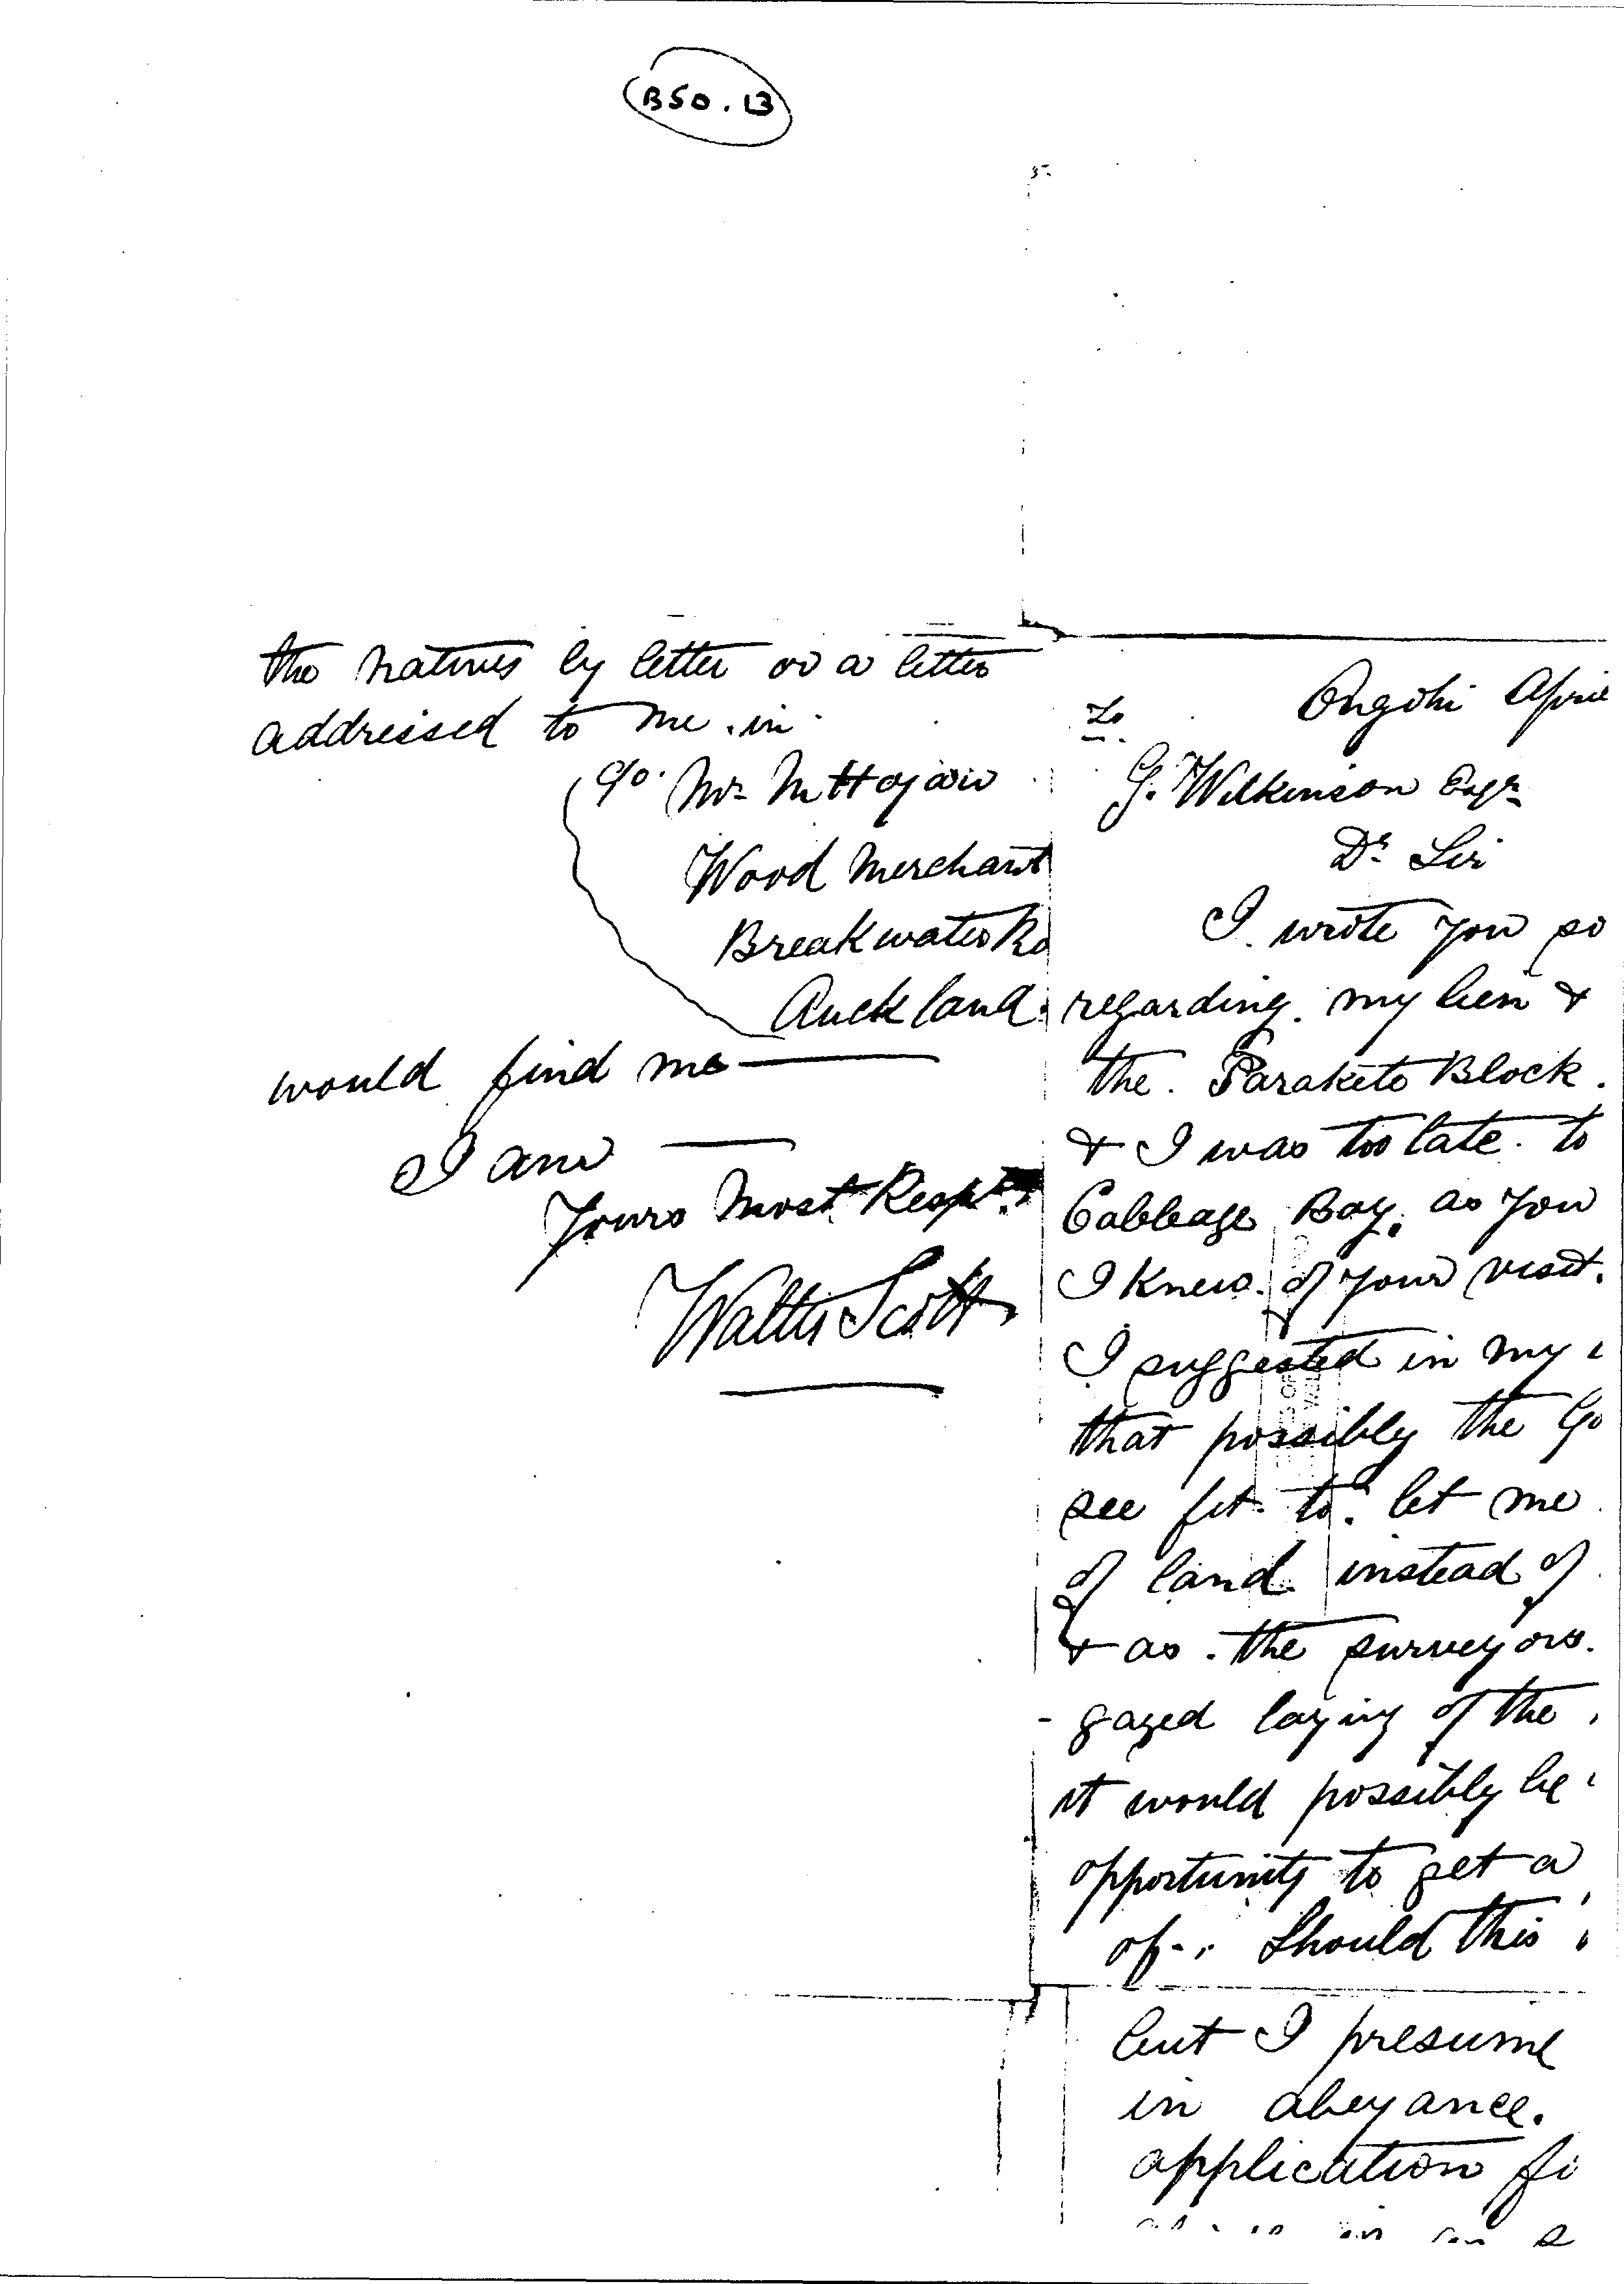 B50.13
the natives by letter or a letter
addressed to me in
c/o Mr
Wood Merchant
Breakwater Rd
Auckland
would find me
I am
Yours Most Respt.
Walter Scott
To
Ongohi April
G. Wilkinson Esqr
Dr Sir
I wrote you so
regarding my lien &
the Paraketo Block
& I was too late to
Cabbage Bay, as you
I knew of your visit.
I suggested in my
that possibly the Go
see fit to let me
of land instead of
& as the surveyors
-gaged laying of the
it would possibly be
opportunity to get a
of. Should this
but I presume
in abeyance.
application